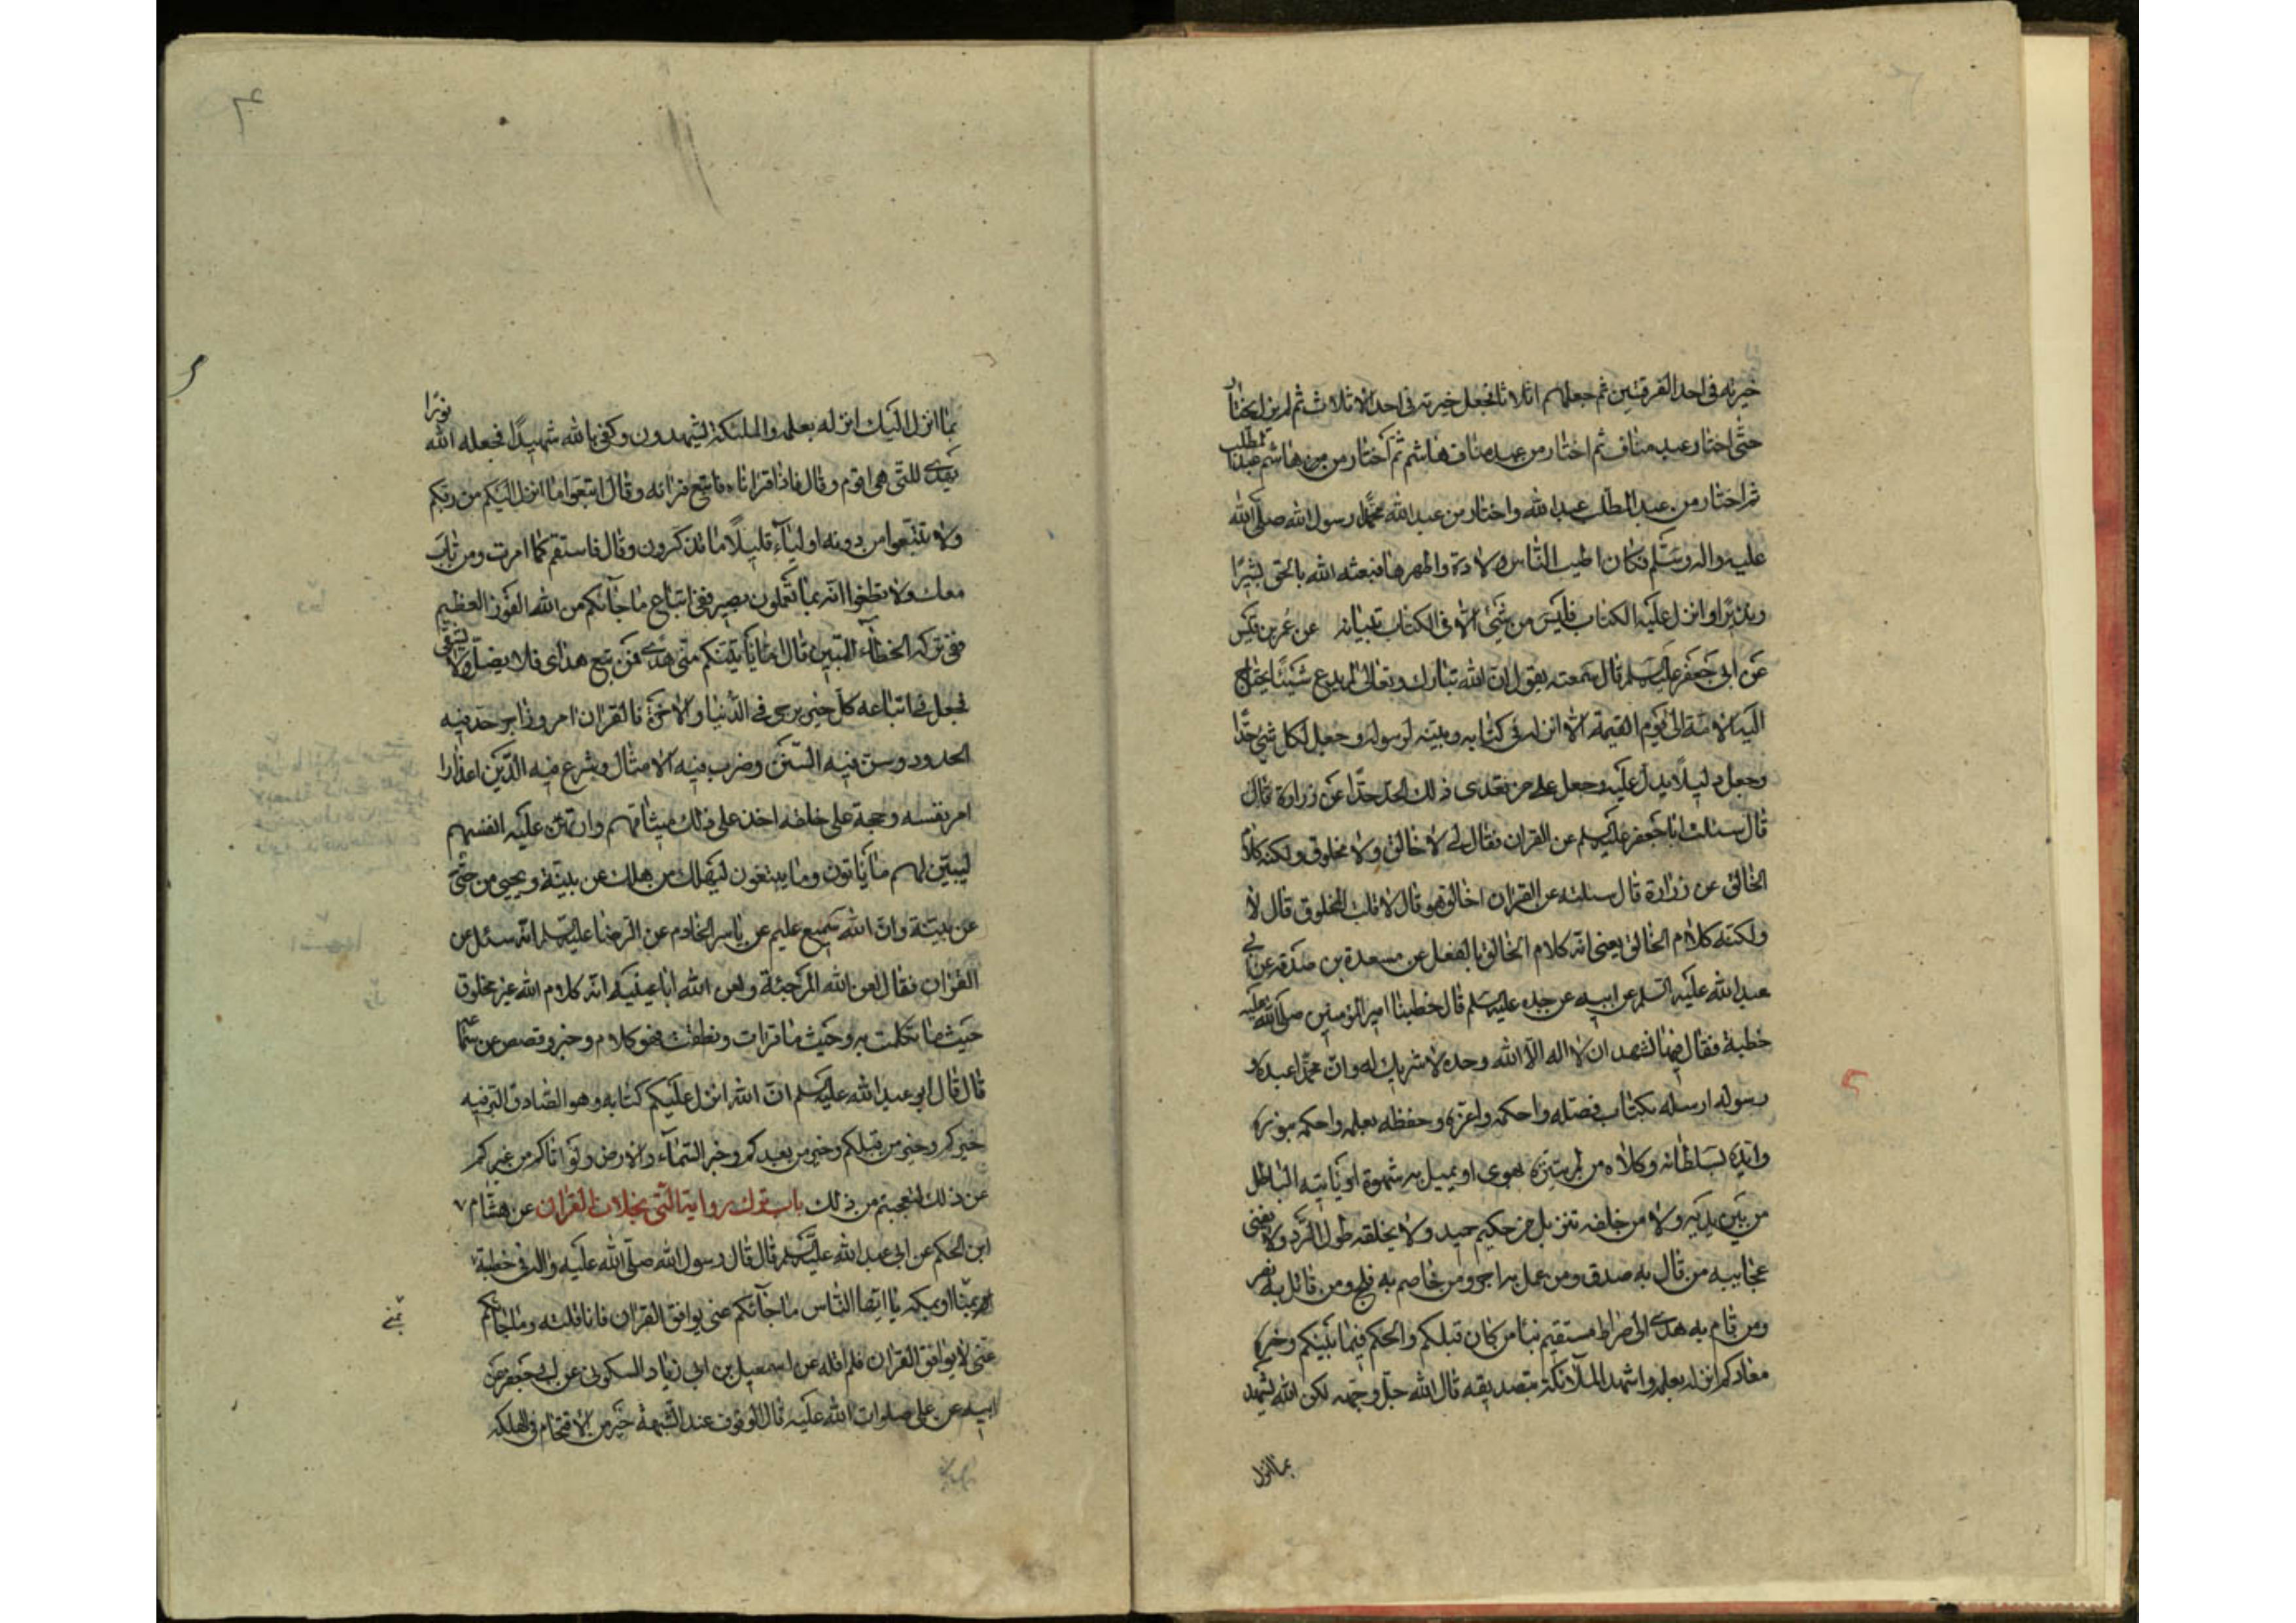 خيرته فى احد الفرقتين ثم جعلهم اثلاثا فجعل خيرته فى احد الاثلاث ثم لم يزل يختار
حتى اختار عبد مناف ثم اختار من عبد مناف هاشم ثم اختار من هاشم عبد المطلب
ثم اختار من عبد المطلب عبد الله واختار من عبد الله محمدا رسول الله صلى الله
عليه واله وسلم فكان اطيب الناس ولادة واطهرها فبعثه الله بالحق بشيرا
ونذيرا وانزل عليه الكتاب فليس من شيئ الا فى الكتاب تبيانه عن عمر بن قيس
عن ابى جعفر عليه السلم قال سمعته يقول ان الله تبارك وتعالى لم يدع شيئا يحتاج
اليه الامة الى يوم القيمة الا انزله فى كتابه وبينه لرسوله وجعل لكل شئ حدا
وجعل دليلا يدل عليه وجعل على من تعدى ذلك الحد حدا عن زرارة قال
قال سئلت ابا جعفر عليه السلم عن القران فقال لى لا خالق ولا مخلوق ولكنه كلام
الخالق عن زرارة قال سئلته عن القران اخالق هو قال لا قلت المخلوق قال لا
ولكنه كلام الخالق يعنى انه كلام الخالق بالفعل عن مسعدة بن صدقه عن ابى
عبد الله عليه السلم عن ابيه عن جده عليه السلم قال خطبنا امير المؤمنين صلى الله عليه
خطبة فقال فيها نشهد ان لا اله الا الله وحده لا شريك له وان محمدا عبده و
رسوله ارسله بكتاب فصله واحكمه واعزه وحفظه بعلمه واحكمه بنوره
وايده بسلطانه وكلاه من لم يتنزه هوى او يميل به شهوة او ياتيه الباطل
من بين يديه ولا من خلفه تنزيل من حكيم حميد ولا يخلقه طول الرد ولا يفنى
عجايبه من قال به صدق ومن عمل به اجر ومن خاصم به فلج ومن قاتل به نصر
ومن قام به هدى الى صراط مستقيم نبا من كان قبلكم والحكم فيما بينكم وخيرة
معادكم انزله بعلمه واشهد الملائكة بتصديقه قال الله جل وجهه لكن الله يشهد
بما انزل
بما انزل اليك انزله بعلمه والملئكة يشهدون وكفى بالله شهيدا فجعله الله نورا
يهدى للتى هى اقوم وقال فاذا قراناه فاتبع قرانه وقال اتبعوا ما انزل اليكم من ربكم
ولا تتبعوا من دونه اولياء قليلا ما تذكرون وقال فاستقم كما امرت ومن تاب
معك ولا تطغوا انه بما تعملون بصير ففى اتباع ما جاءكم من الله الفوز العظيم
وفى تركه الخطاء المبين قال اما ياتينكم منى هدى فمن تبع هداى فلا يضل ولا يشقى
فجعل فى اتباعه كل خير يرجى فى الدنيا والاخرة فالقران امر وزاجر حد فيه
الحدود وسن فيه السنن وضرب فيه الامثال وشرع فيه الدين اعذارا
امر نفسه وحجة على خلقه اخذ على ذلك ميثاقهم وارتهن عليه انفسهم
ليبين لهم ما ياتون وما يبتغون ليهلك من هلك عن بينة ويحيى من حى
عن بينة وان الله سميع عليم عن ياسر الخادم عن الرضا عليه السلم انه سئل عن
القران فقال لعن الله المرجئة ولعن الله ابا حنيفه انه كلام الله غير مخلوق
حيث ما تكلمت به وحيث ما قرات ونطقت فهو كلام وخبر وقصص عن سماعه
قال قال ابو عبد الله عليه السلم ان الله انزل عليكم كتابه وهو الصادق البر فيه
خبركم وخبر من قبلكم وخبر من بعدكم وخبر السماء والارض ولو اتاكم من يخبركم
عن ذلك لتعجبتم من ذلك باب ترك رواية التى بخلاف القران عن هشام
ابن الحكم عن ابى عبد الله عليه السلم قال قال رسول الله صلى الله عليه واله فى خطبة
بمنا او بمكه يا ايها الناس ما جائكم عنى يوافق القران فانا قلته وما جائكم
عنى لا يوافق القران فلم اقله عن اسمعيل بن ابى زياد السكونى عن ابى جعفر عن
ابيه عن على صلوات الله عليه قال الوقوف عند الشبهة خير من الاقتحام فى الهلكه